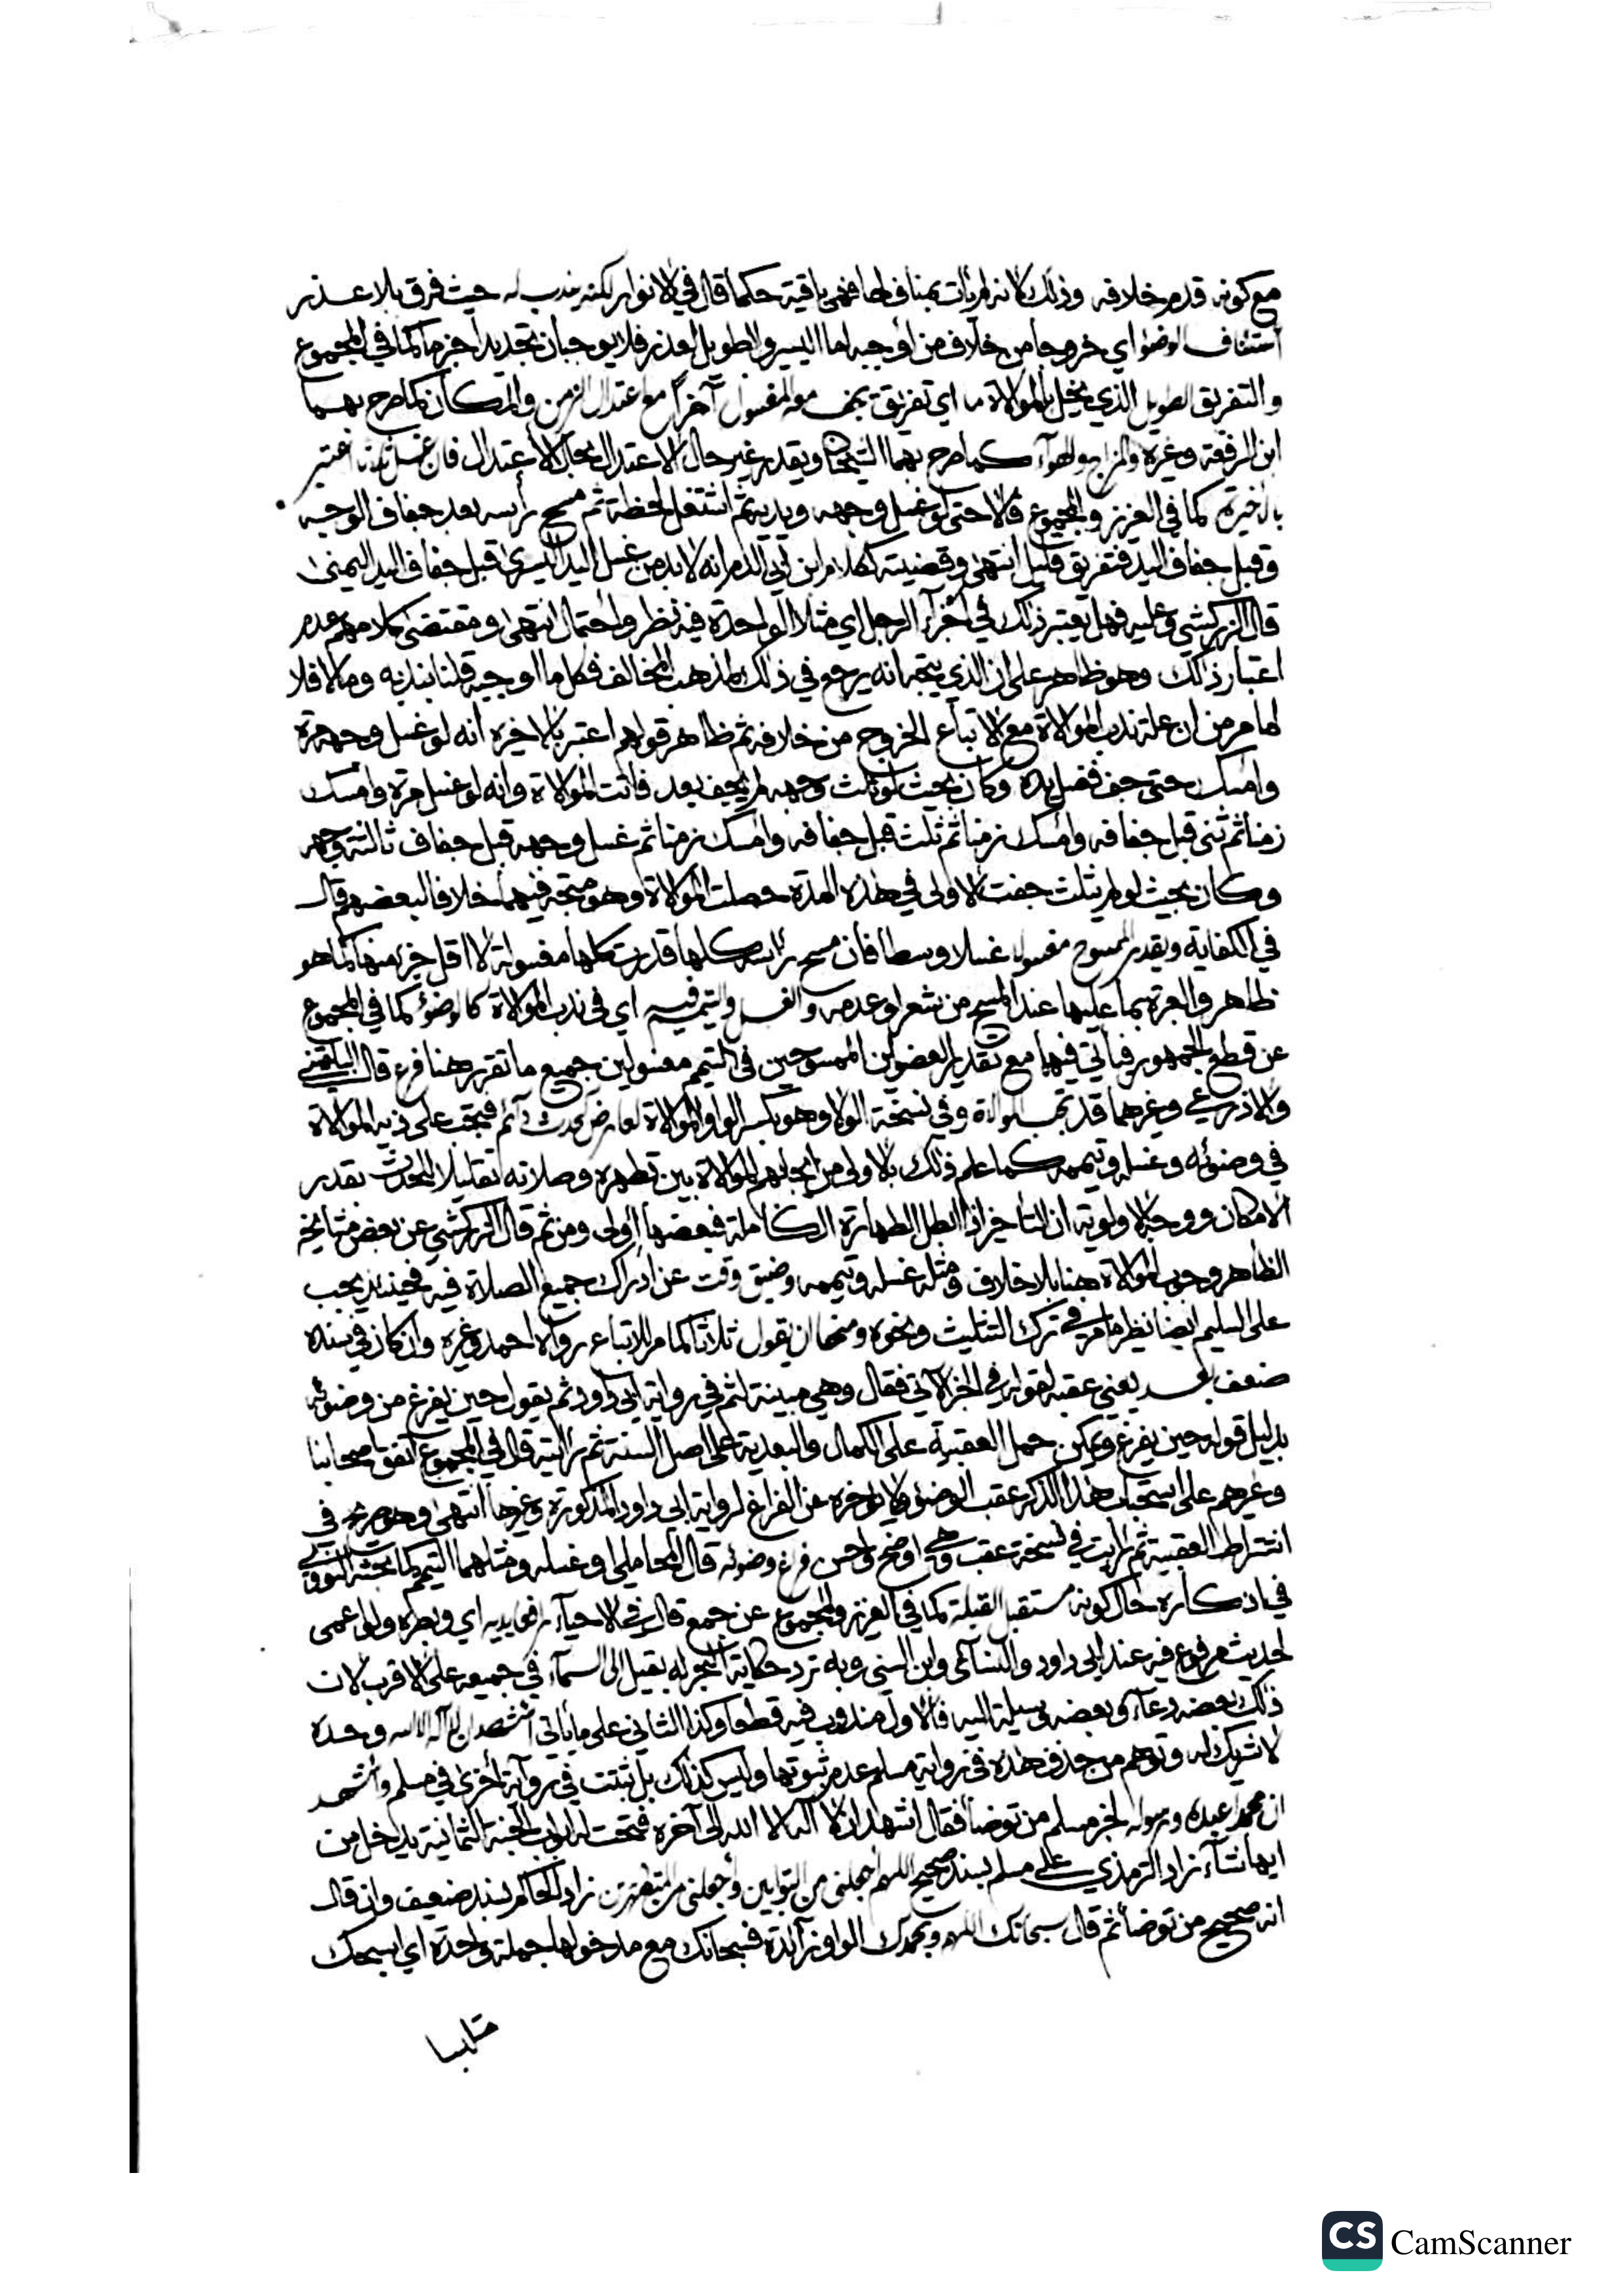 مع كونه قدم خلافه وذلك لانه لم يات بمناف لها فهي باقية حكما قال في الانوار لكنه يندب له حيث فرق بلا عذر
استئناف الوضوء اي خروجا من خلاف من أوجبه اما اليسير والطويل لعذر فلا يوجبان تجديد أجزما كما في المجموع
والتفريق الطويل الذي يخل بالموالاة ما اي تفريق يجف معه المغسول آخرا مع اعتدال الزمن والمكان كما صرح بهما
ابن الرفعة وغيره والمزاج والهوآء كما صرح بهما الشيخان ويقدر غير حال الاعتدال بحال الاعتدال فان غسل ثلاثا اعتبر
بالاخيرة كما في العزيز والمجموع قالا حتى لو غسل وجهه ويديه ثم اشتغل لحظة ثم مسح رأسه بعد جفاف الوجه
وقبل جفاف اليد فتفريق قليل انتهى وقضيته كلام ابن ابي الدم انه لا بد من غسل اليد اليسرى قبل جفاف اليد اليمنى
قال الزركشي وعليه فهل يعتبر ذلك في أجزآء الرجل اي مثلا الواحدة فيه نظر واحتمال انتهى ومقتضى كلامهم عدم
اعتبار ذلك وهو ظاهر على ان الذي يتجه انه يرجع في ذلك لمذهب المخالف فكل ما اوجبه قلنا بندبه وما لا فلا
لما مر من ان علة ندب الموالاة مع الاتباع الخروج من خلافه ثم ظاهر قولهم اعتبر بالاخيرة انه لو غسل وجهه مرة
وامسك حتى جف فغسل يده وكان بحيث لو ثلث وجهه لم يجف بعد فاتت الموالاة وانه لو غسل مرة وامسك
زمنا ثم ثنى قبل جفافه وامسك زمنا ثم ثلث قبل جفافه وامسك زمنا ثم غسل وجهه قبل جفاف ثالثة وجهه
وكان بحيث لو لم يثلث جفت الاولى في هذه المدة حصلت الموالاة وهو متجه فيهما خلافا لبعضهم قال
في الكفاية ويقدر الممسوح مغسولا غسلا وسطا فان مسح رأسه كلها قدرت كلها مغسولة لا اقل جزء منها كما هو
ظاهر والعبرة بما عليها عند المسح من شعر او عدمه والغسل والتيمم فيه اي في ندب الموالاة كالوضوء كما في المجموع
عن قطع الجمهور فيأتي فيها مع تقدير العضوين الممسوحين في التيمم مغسولين جميع ما تقرر هنا فرع قال البلقيني
والاذرعي وغيرهما قد تجب الموالاة وفي نسخة الولا وهو بكسر الواو الموالاة لعارض كحدث دآئم فتجب على ذيه الموالاة
في وضوئه وغسله وتيممه كما علم ذلك بالاولى من ايجابهم الموالاة بين تطهره وصلاته تقليلا للحدث بقدر
الامكان ووجه الاولوية ان التأخير اذا ابطل الطهارة الكاملة فبعضها اولى ومن ثم قال الزركشي عن بعض مشايخه
الظاهر وجوب الموالاة هنا بلا خلاف ومثله غسله وتيممه وضيق وقت عن ادراك جميع الصلاة فيه فحينئذ يجب
على السليم ايضا نظير ما مر في ترك التثليث ونحوه ومنها ان يقول ثلاثا كما مر للاتباع رواه احمد وغيره وان كان في سنده
ضعف بعد يعني عقبه لقوله في الخبر الآتي فقال وهي مبينة لثم في رواية ابي داود ثم يقول حين يفرغ من وضوئه
بدليل قوله حين يفرغ ويمكن حمل العقبية على الكمال والبعدية على اصل السنة ثم رأيته قال في المجموع اتفق اصحابنا
وغيرهم على استحباب هذا الذكر عقب الوضوء ولا يؤخره عن الفراغ لرواية ابي داود المذكورة وغيرها انتهى وهو صريح في
اشتراط العقبية ثم رأيت في نسخة عقب وهي اوضح واحسن فراغ وضوئه قال المحاملي او غسله ومثلهما التيمم كما بحثه النووي
في اذكاره حال كونه مستقبل القبلة كما في العزيز والمجموع عن جمع قال في الاحيآء رافعا يديه اي وبصره ولو اعمى
لحديث مرفوع فيه عند ابي داود والنسائى وابن السني وبه ترد حكاية البحر له بقيل الى السمآء في جميعه على الاقرب لان
ذلك بعضه دعآء وبعضه وسيلة اليه فالاول مندوب فيه قطعا وكذا الثاني على ما ياتى أشهد ان لا آله الا الله وحده
لا شريك له وتوهم من حذف هذه في رواية مسلم عدم ثبوتها وليس كذلك بل ثبتت في رواية أخرى في مسلم وأشهد
ان محمدا عبده ورسوله لخبر مسلم من توضأ فقال اشهد ان لا آله الا الله الى آخره فتحت له ابواب الجنة الثمانية يدخل من
ايها شآء زاد الترمذي على مسلم بسند صحيح اللهم اجعلنى من التوابين واجعلنى من المتطهرين زاد الحاكم بسند ضعيف وان قال
انه صحيح من توضأ ثم قال سبحانك اللهم وبحمدك الواو زآئدة فسبحانك مع مدخولها جملة واحدة اي اسبحك
CS CamScanner